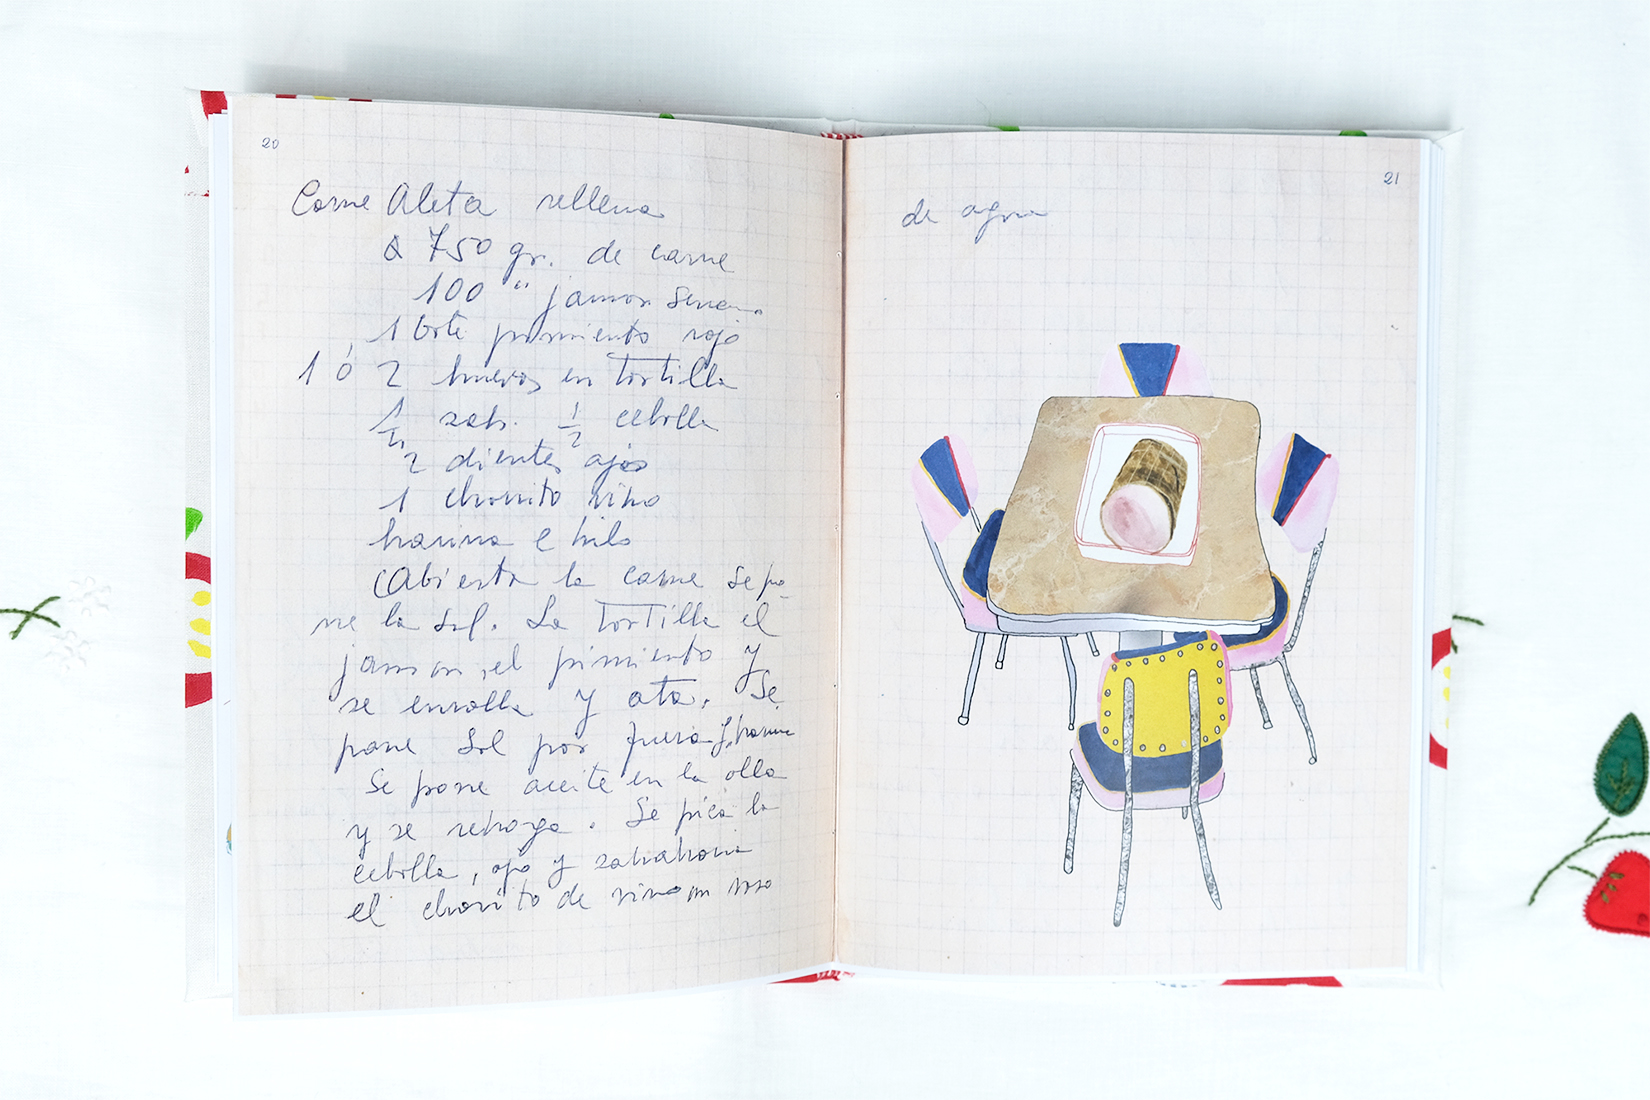 20
Carne Aleta rellena
750 gr. de carne
100 " jamon serrano
1 bote pimiento rojo
1 ó 2 huevos en Tortilla
1/2 zah. 1/2 cebolla
2 dientes ajos
1 chorrito vino
harina e hilo
Abierta la carne se po-
ne la sal. La Tortilla el
jamon, el pimiento y
se enrolla y ata. Se
pone sal por fuera y harina
Se pone aceite en la olla
y se rehoga. Se pica la
cebolla, ajo y zahahoria
el chorrito de vino un vaso
21
de agua